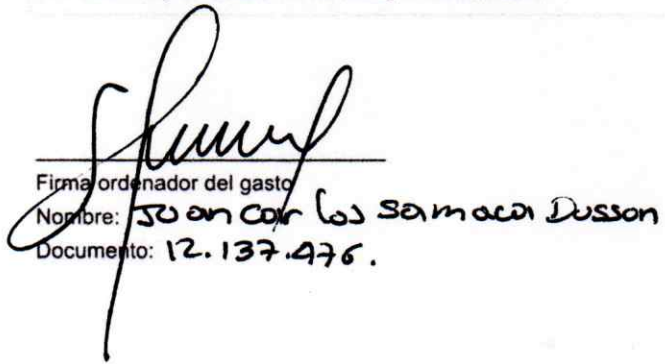 Firma ordenador del gasto
Nombre: Juan Carlos Samaca Dusson
Documento: 12.137.476.